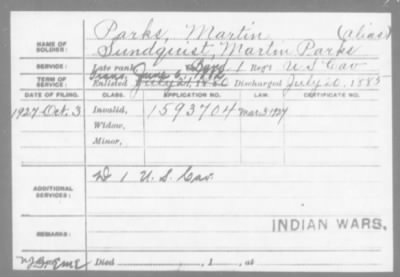 NAME OF SOLDIER: Parks, Martin (alias)
Sundquist, Martin Parks
SERVICE: Late rank, Band, 1 Reg't U S Cav
TERM OF SERVICE: Trans, June 6, 1882
Enlisted July 21, 1880 Discharged July 20, 1885
DATE OF FILING. CLASS. APPLICATION NO. LAW. CERTIFICATE NO.
1927 Oct. 3 Invalid, 1593704 Mar. 3 1927
Widow,
Minor,
ADDITIONAL SERVICES: D 1 U. S. Cav.
INDIAN WARS.
REMARKS:
Died , 1 , at